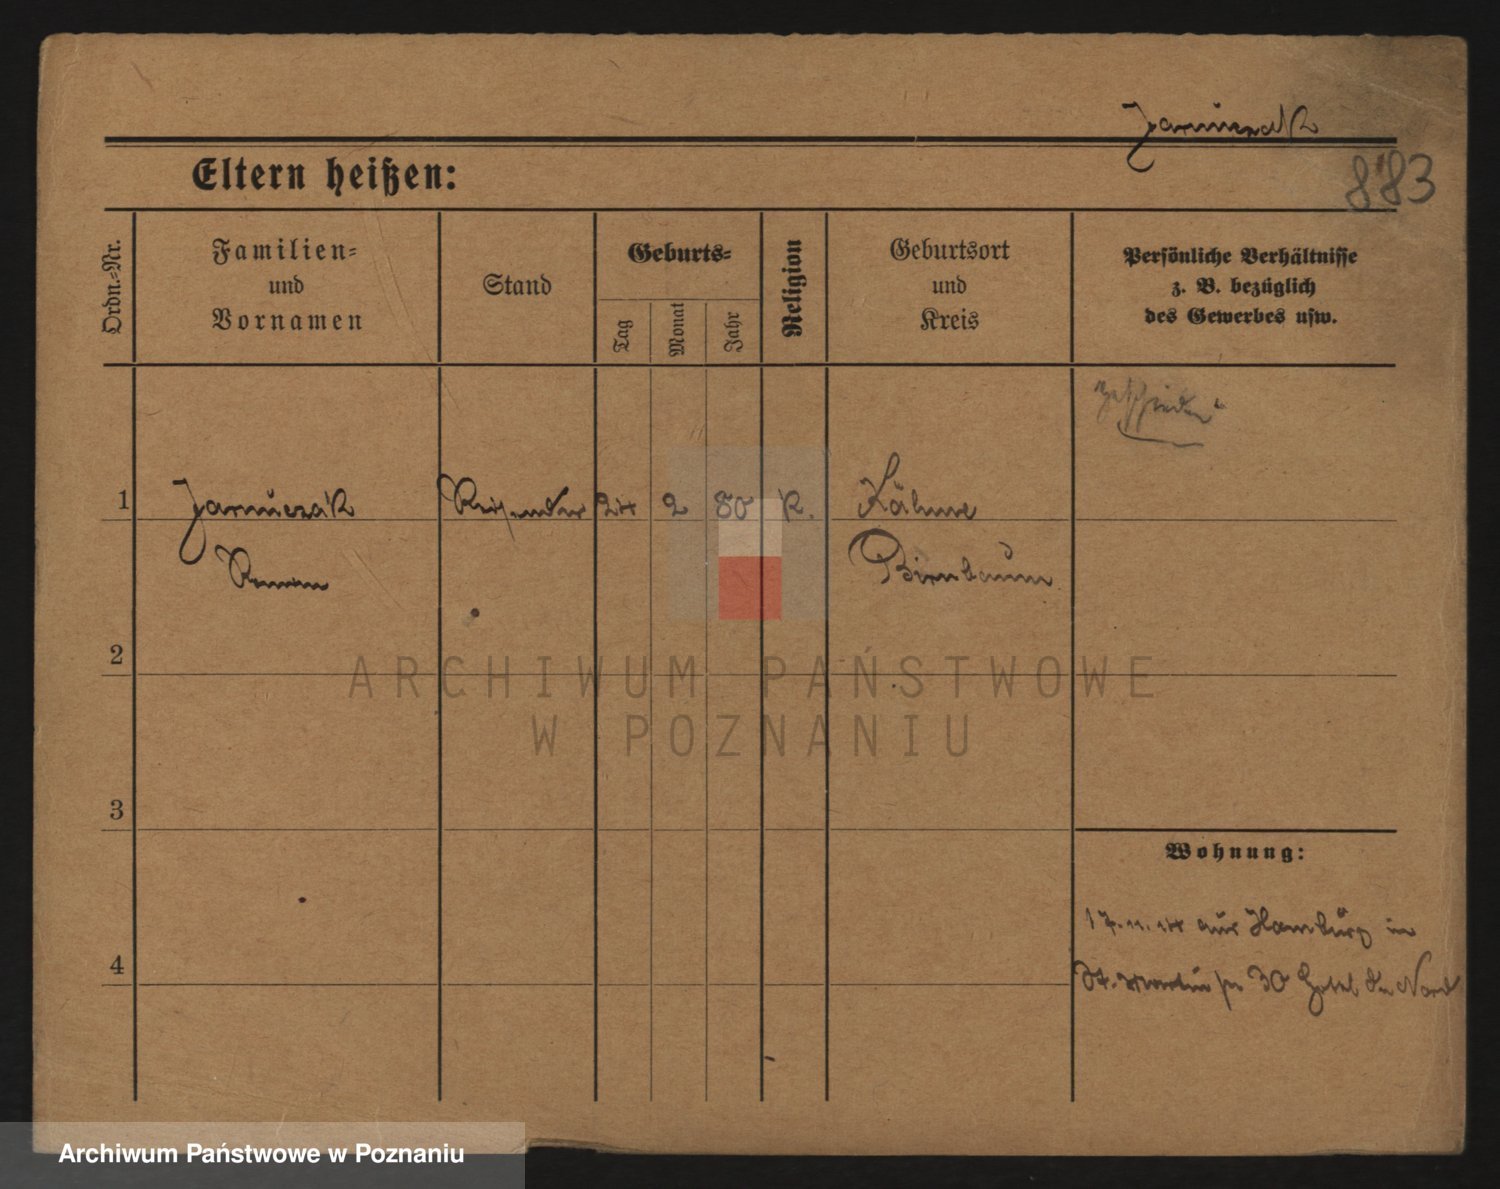 Jarniczak
883
Eltern heißen:
Ordn.-Nr.
Familien-
und
Vornamen
Stand
Geburts-
Tag
Monat
Jahr
Religion
Geburtsort
und
Kreis
Persönliche Verhältnisse
z. B. bezüglich
des Gewerbes usw.
"geschieden"
1 Jarniczak Reisender 24 2 80 K. Kähme
Roman Birnbaum
2
3
4
Wohnung:
17.11.14 aus Hamburg in
St. Martin str 30 Hotel du Nord
ARCHIWUM PAŃSTWOWE
W POZNANIU
Archiwum Państwowe w Poznaniu